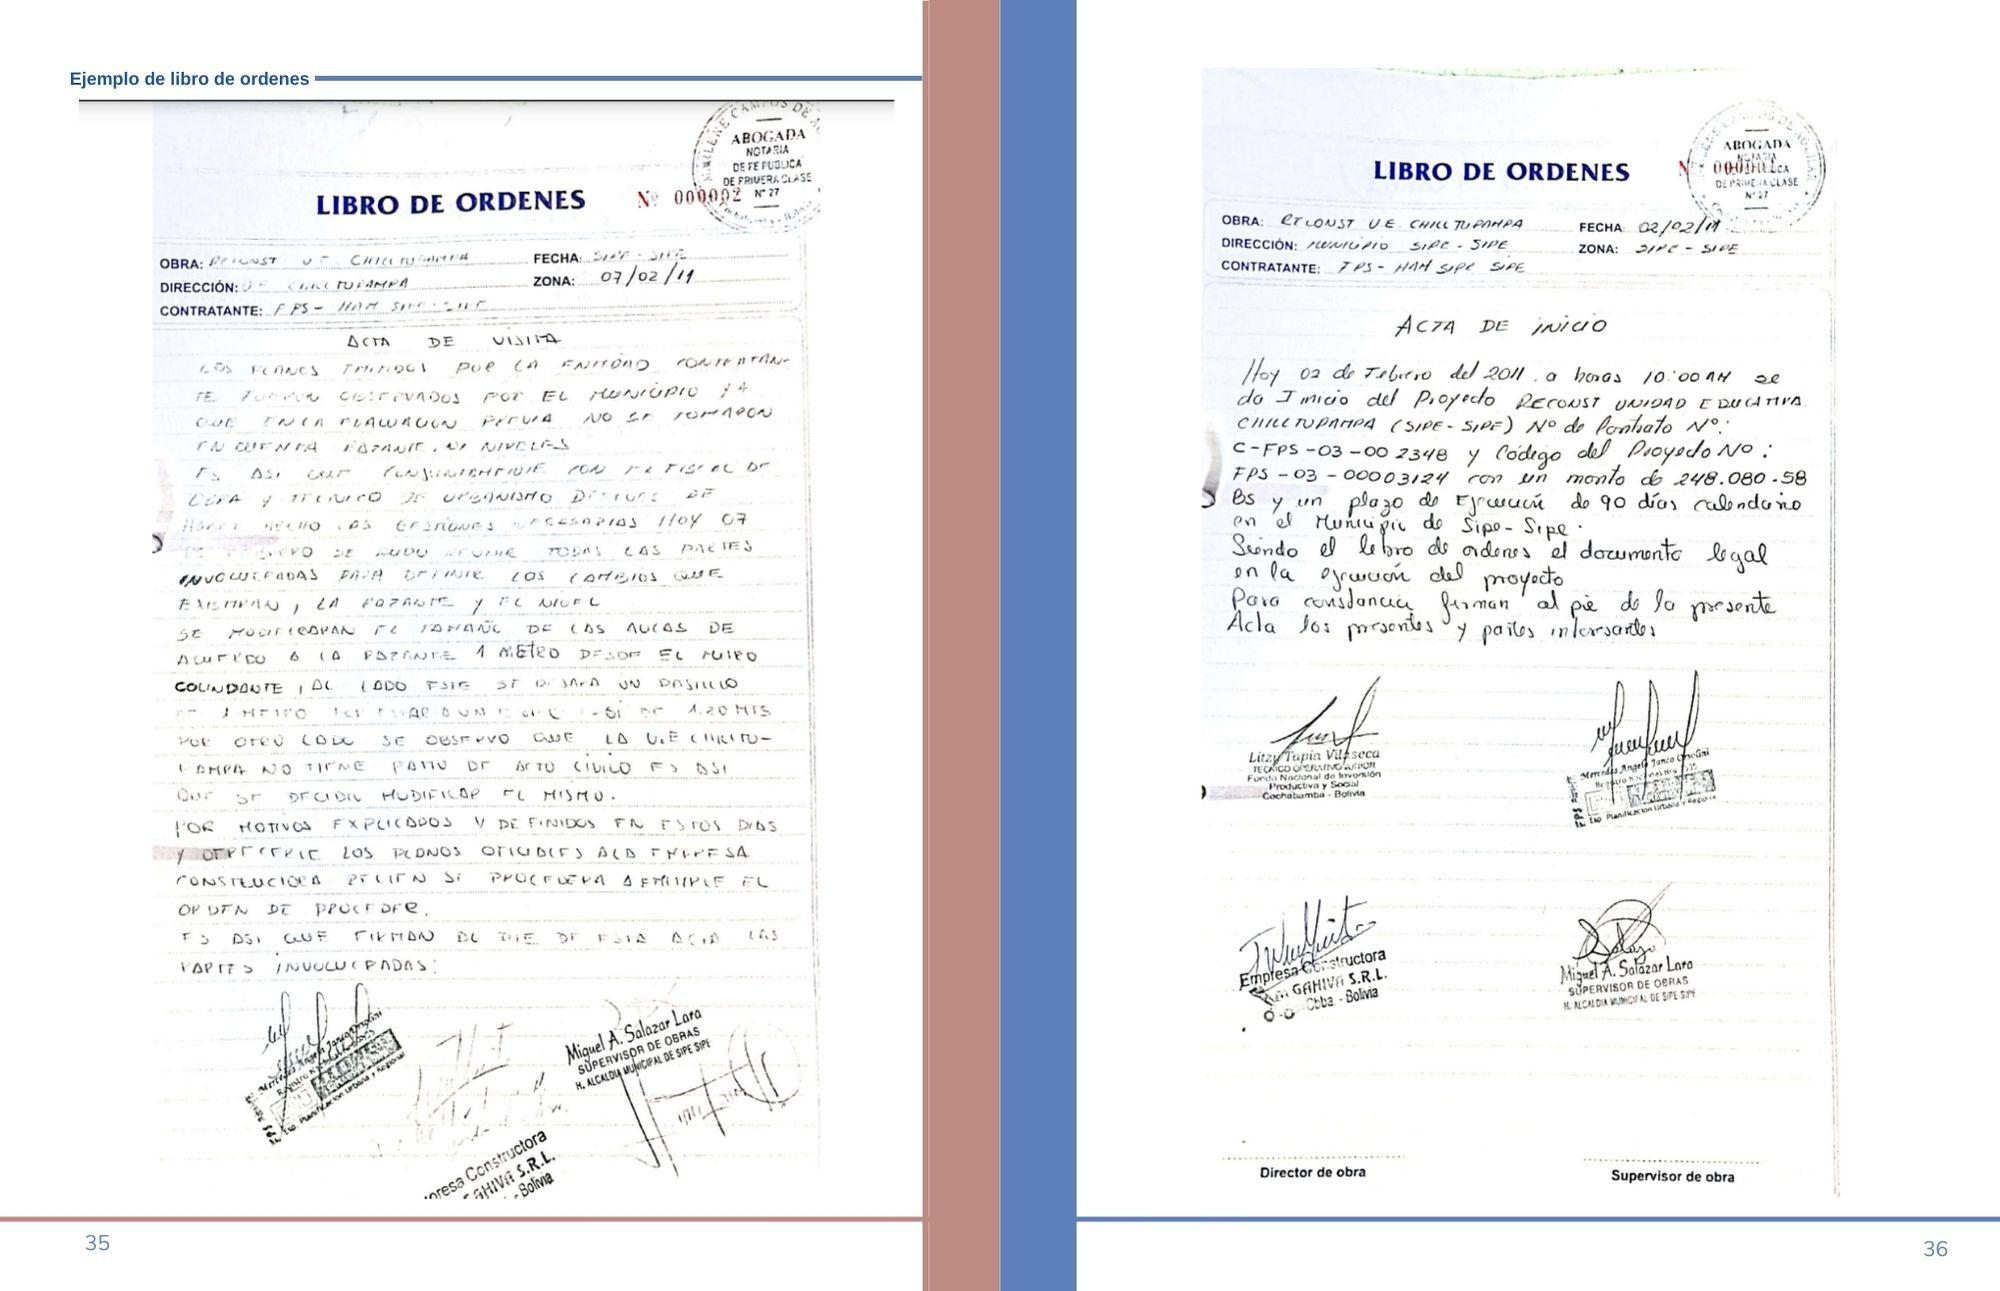 Ejemplo de libro de ordenes
ABOGADA
NOTARIA
DE FE PUBLICA
DE PRIMERA CLASE
N° 27
LIBRO DE ORDENES Nº 000002
OBRA: RECONST U.E CHILLTUPAMPA FECHA: SIPE - SIPE
DIRECCIÓN: U.E CHILLTUPAMPA ZONA: 07/02/11
CONTRATANTE: FPS - HAM SIPE-SIPE
ACTA DE VISITA
LOS PLANOS EMITIDOS POR LA ENTIDAD CONTRATAN-
TE FUERON OBSERVADOS POR EL MUNICIPIO YA
QUE EN LA EVALUACION PREVIA NO SE TOMARON
EN CUENTA RAZANTE, NI NIVELES
ES ASI QUE CONJUNTAMENTE CON EL FISCAL DE
OBRA Y TECNICO DE URBANISMO DESPUES DE
HABER HECHO LAS GESTIONES NECESARIAS HOY 07
DE FEBRERO SE PUDO REUNIR TODAS LAS PARTES
INVOLUCRADAS PARA DEFINIR LOS CAMBIOS QUE
EXISTIRAN, LA RAZANTE Y EL NIVEL
SE MODIFICARAN EL TAMAÑO DE LAS AULAS DE
ACUERDO A LA RAZANTE 1 METRO DESDE EL MURO
COLINDANTE, AL LADO ESTE SE DEJARA UN PASILLO
DE 1 METRO DE 1.20 MTS
POR OTRO LADO SE OBSERVO QUE LA U.E CHILLTU-
PAMPA NO TIENE PATIO DE ACTO CIVICO ES ASI
QUE SE DECIDIO MODIFICAR EL MISMO.
POR MOTIVOS EXPLICADOS Y DEFINIDOS EN ESTOS DIAS
Y LOS PLANOS OFICIALES A LA EMPRESA
CONSTRUCTORA RECIEN SE PROCEDERA A EMITIRLE EL
ORDEN DE PROCEDER.
ES ASI QUE FIRMAN AL PIE DE ESTA ACTA LAS
PARTES INVOLUCRADAS:
Miguel A. Salazar Lara
SUPERVISOR DE OBRAS
H. ALCALDIA MUNICIPAL DE SIPE SIPE
presa Constructora
GAHIVA S.R.L.
Bolivia
35
ABOGADA
DE PRIMERA CLASE
N° 27
LIBRO DE ORDENES
OBRA: RECONST U.E. CHILLTUPAMPA FECHA: 02/02/11
DIRECCIÓN: MUNICIPIO SIPE - SIPE ZONA: SIPE - SIPE
CONTRATANTE: FPS - HAM SIPE SIPE
ACTA DE INICIO
Hoy 02 de Febrero del 2011. a horas 10:00 AM se
da Inicio del Proyecto RECONST UNIDAD EDUCATIVA
CHILLTUPAMPA (SIPE-SIPE) Nº de Contrato Nº:
C-FPS-03-00 2348 y Código del Proyecto Nº:
FPS-03-00003124 con un monto de 248.080.58
Bs y un plazo de Ejecución de 90 días calendario
en el Municipio de Sipe-Sipe.
Siendo el libro de ordenes el documento legal
en la ejecución del proyecto
Para constancia firman al pie de la presente
Acta los presentes y partes interesantes
Litzy Tapia Vilaseca
TECNICO OPERATIVO JUNIOR
Fondo Nacional de Inversión
Productiva y Social
Cochabamba - Bolivia
Mercedes Angela Janco Orsolini
Esp. Planificacion Urbana y Regional
Empresa Constructora
GAHIVA S.R.L.
Cbba. - Bolivia
Miguel A. Salazar Lara
SUPERVISOR DE OBRAS
H. ALCALDIA MUNICIPAL DE SIPE SIPE
Director de obra Supervisor de obra
36